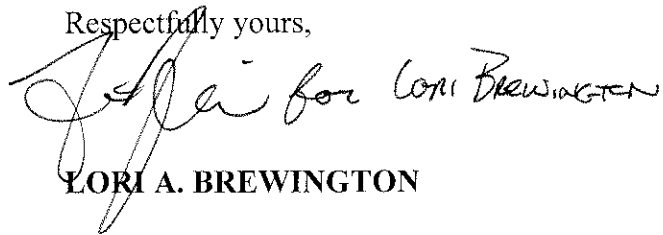 Respectfully yours,
for Lori Brewington
LORI A. BREWINGTON